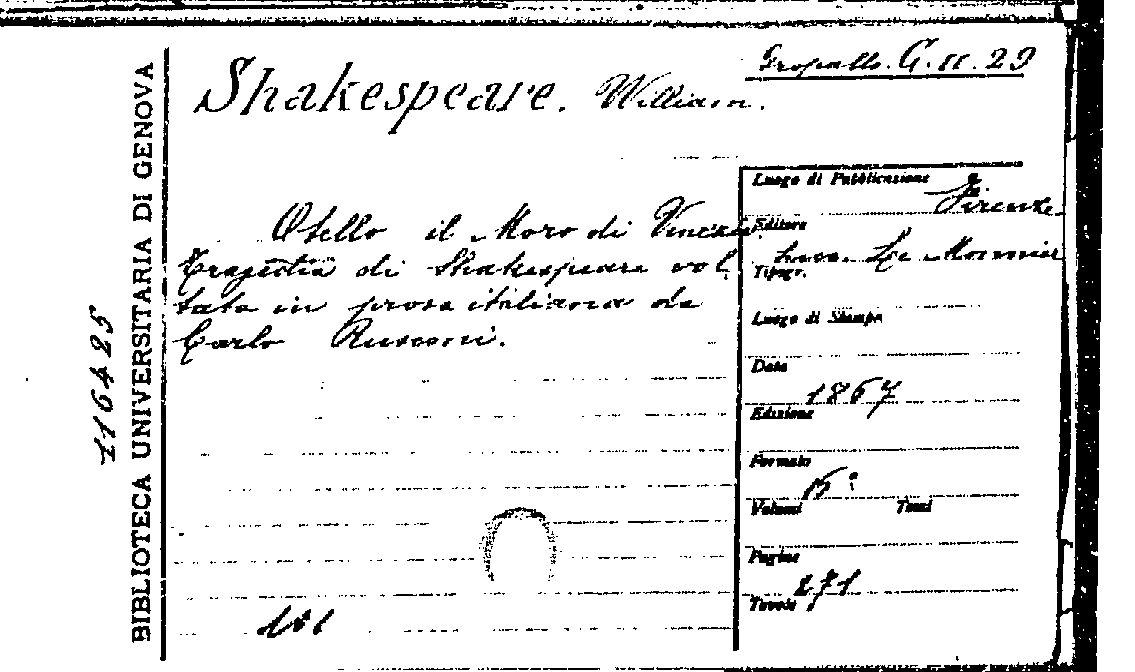 Gropallo. G. 11. 29
Shakespeare. William.
Otello il Moro di Venezia
Tragedia di Shakespeare vol
tata in prosa italiana da
Carlo Rusconi.
Luogo di Pubblicazione
Firenze
Editore
Le Monnier
Tipogr.
Luogo di Stampa
Data
1867
Edizione
Formato
Volumi Tomi
Pagine
271
Tavole
BIBLIOTECA UNIVERSITARIA DI GENOVA
116425